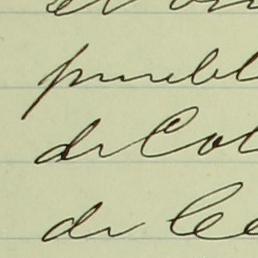 puebl
de Col
de Ce